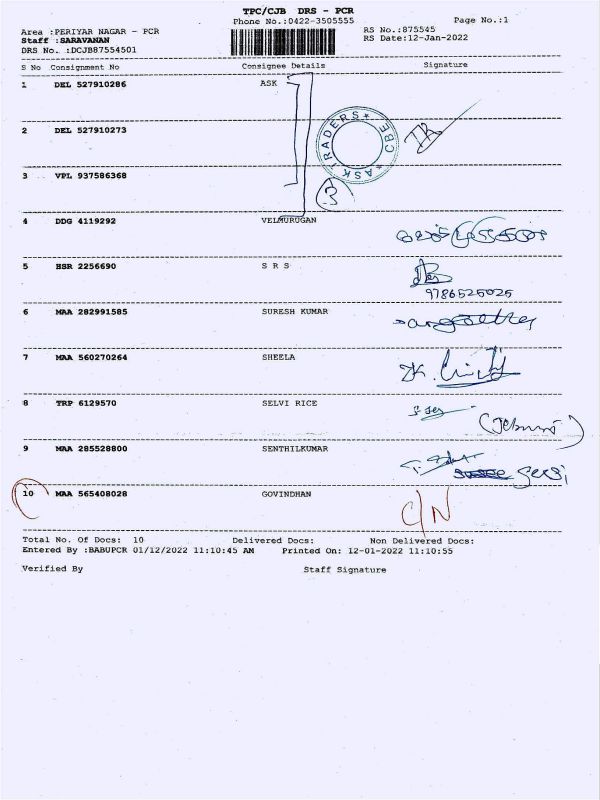 TPC/CJB DRS - PCR
Phone No.:0422-3505555
Page No.:1
Area :PERIYAR NAGAR - PCR
RS No.:875545
Staff :SARAVANAN
RS Date:12-Jan-2022
DRS No. :DCJB87554501
S No Consignment No Consignee Details Signature
1 DEL 527910286 ASK
2 DEL 527910273
ASK TRADERS * CBE *
3 VPL 937586368
3
4 DDG 4119292 VELMURUGAN
5 HSR 2256690 S R S
9786525025
6 MAA 282991585 SURESH KUMAR
7 MAA 560270264 SHEELA
8 TRP 6129570 SELVI RICE
9 MAA 285528800 SENTHILKUMAR
10 MAA 565408028 GOVINDHAN C/N
Total No. Of Docs: 10 Delivered Docs: Non Delivered Docs:
Entered By :BABUPCR 01/12/2022 11:10:45 AM Printed On: 12-01-2022 11:10:55
Verified By Staff Signature